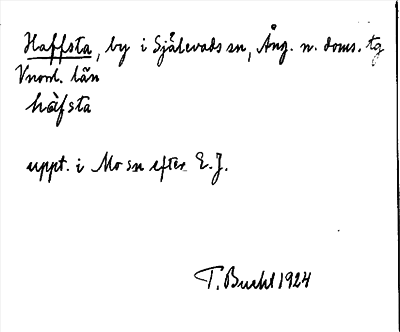 Haffsta, by i Själevads sn, Ång. n. doms. tg
Vnorrl. län
håfsta
uppt. i Mo sn efter E. J.
T. Bucht 1924